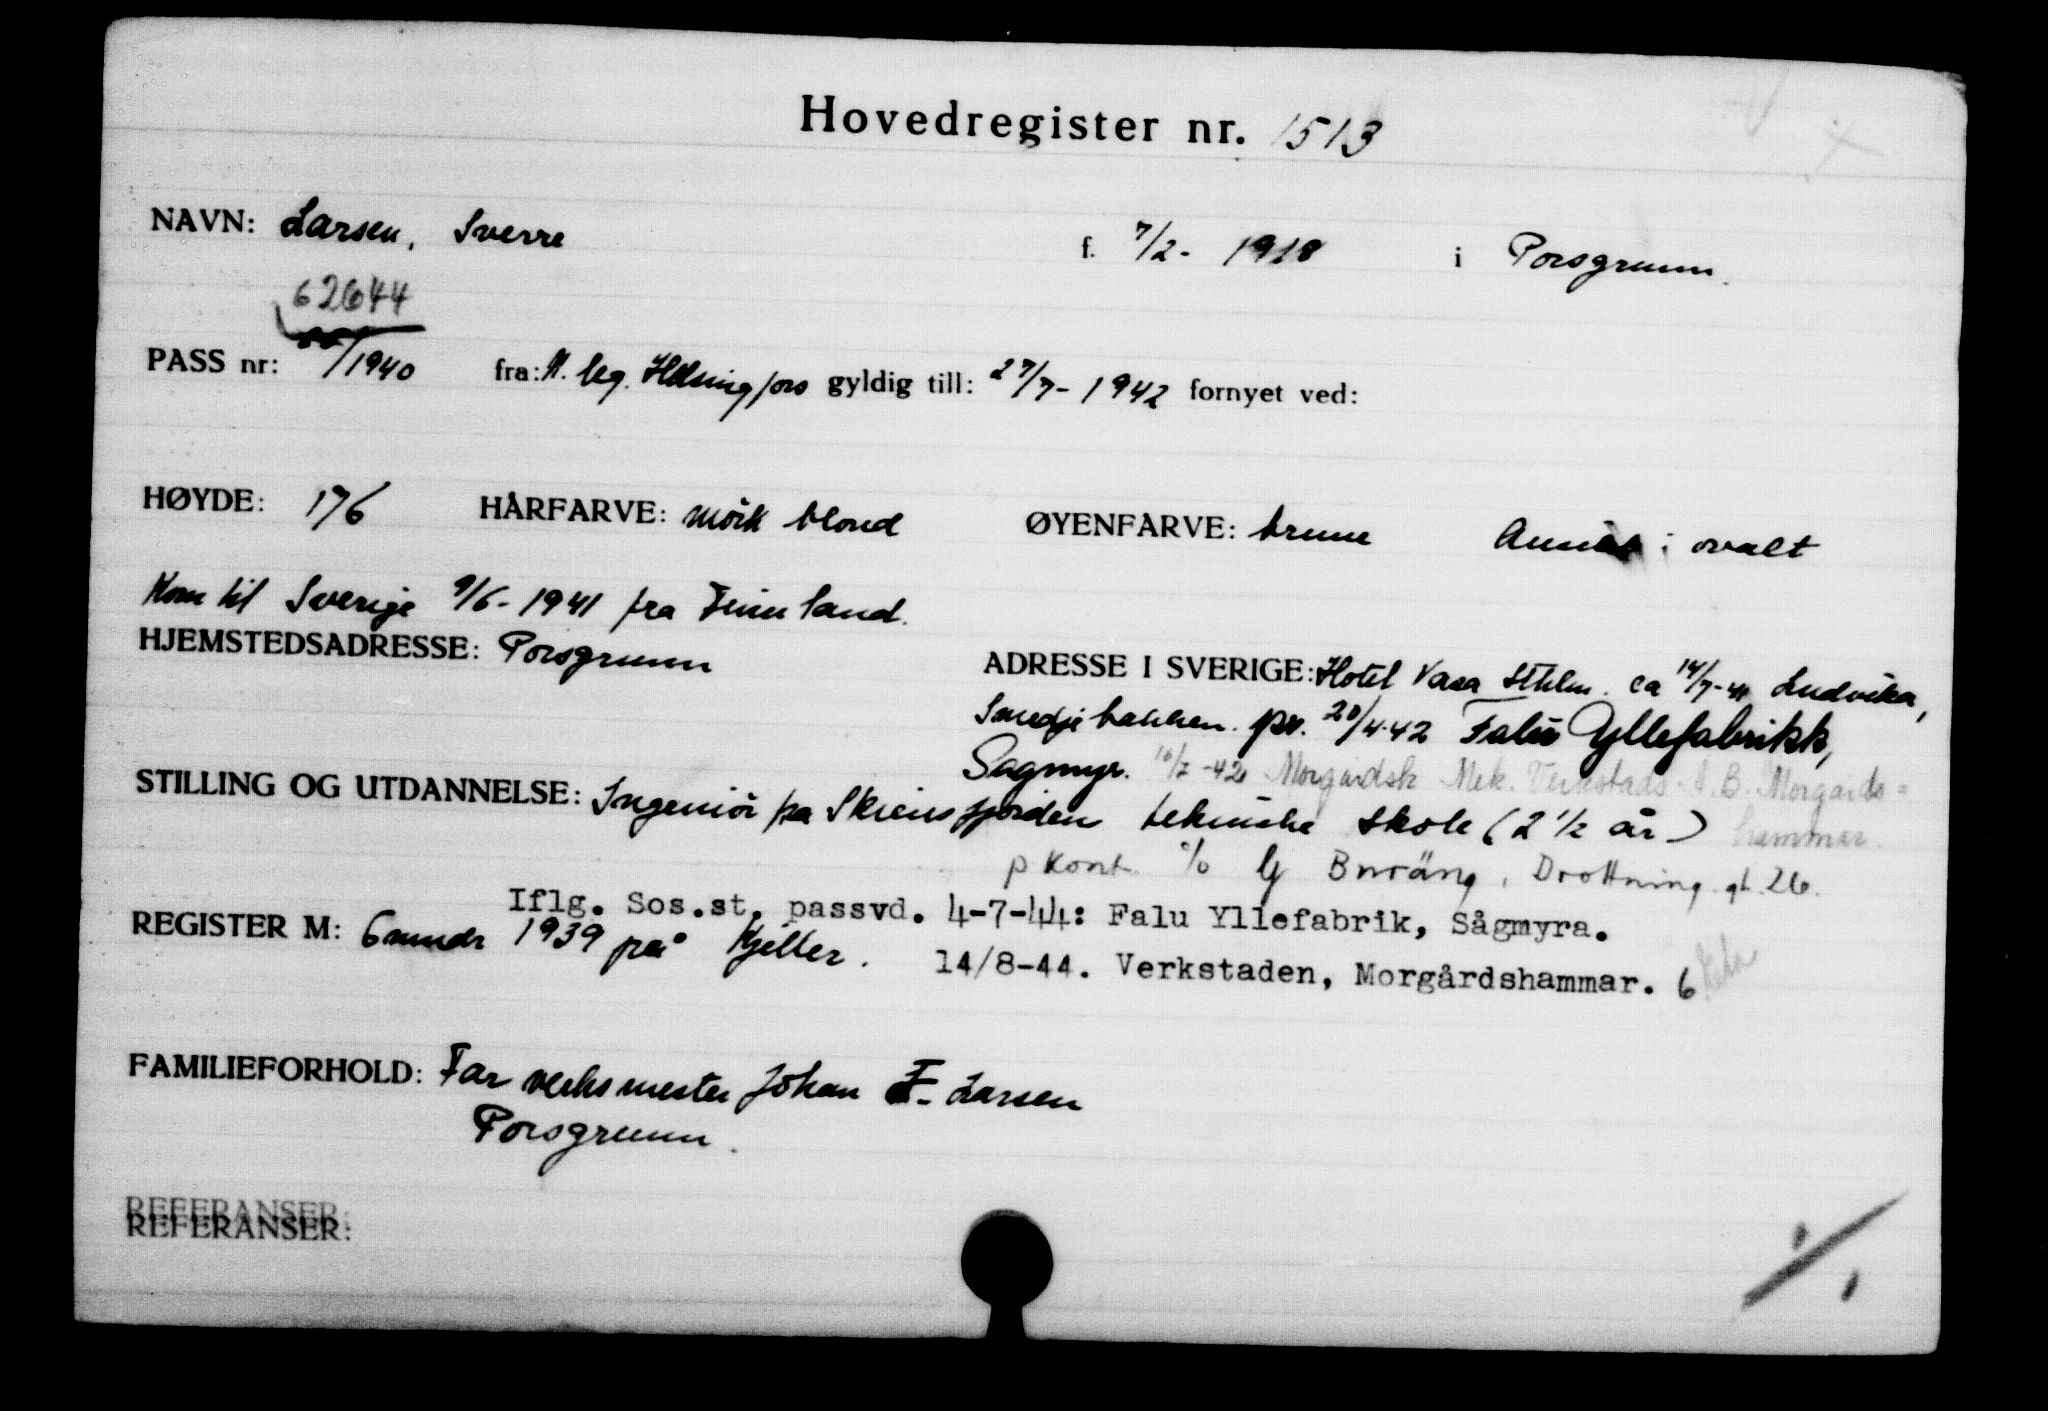 Hovedregister nr. 1513
NAVN: Larsen, Sverre f. 7/2- 1918 i Porsgrunn.
62644
PASS nr: /1940 fra: N. leg. Helsingfors gyldig till: 27/7- 1942 fornyet ved:
HØYDE: 176 HÅRFARVE: mörk blond ØYENFARVE: brune Ansikt: ovalt
Kom til Sverige 9/6- 1941 fra Finnland.
HJEMSTEDSADRESSE: Porsgrunn
ADRESSE I SVERIGE: Hotel Vasa Sthlm. ca 14/7-41 Ludvika,
Smedjebakken. pr. 20/4-42 Falu Yllefabrikk,
Sagmyr. 10/7-42 Morgårdsh Mek. Verkstads A.B. Morgårds=
hammar.
STILLING OG UTDANNELSE: Ingeniör fra Skiensfjorden tekniske skole (2 1/2 år)
p kont c/o Drottning.gt. 26.
Iflg. Sos.st. passvd. 4-7-44: Falu Yllefabrik, Sågmyra.
REGISTER M: 6 mndr 1939 på Kjeller. 14/8-44. Verkstaden, Morgårdshammar. 6
FAMILIEFORHOLD: Far verksmester Johan F. Larsen
Porsgrunn.
REFERANSER:
REFERANSER: